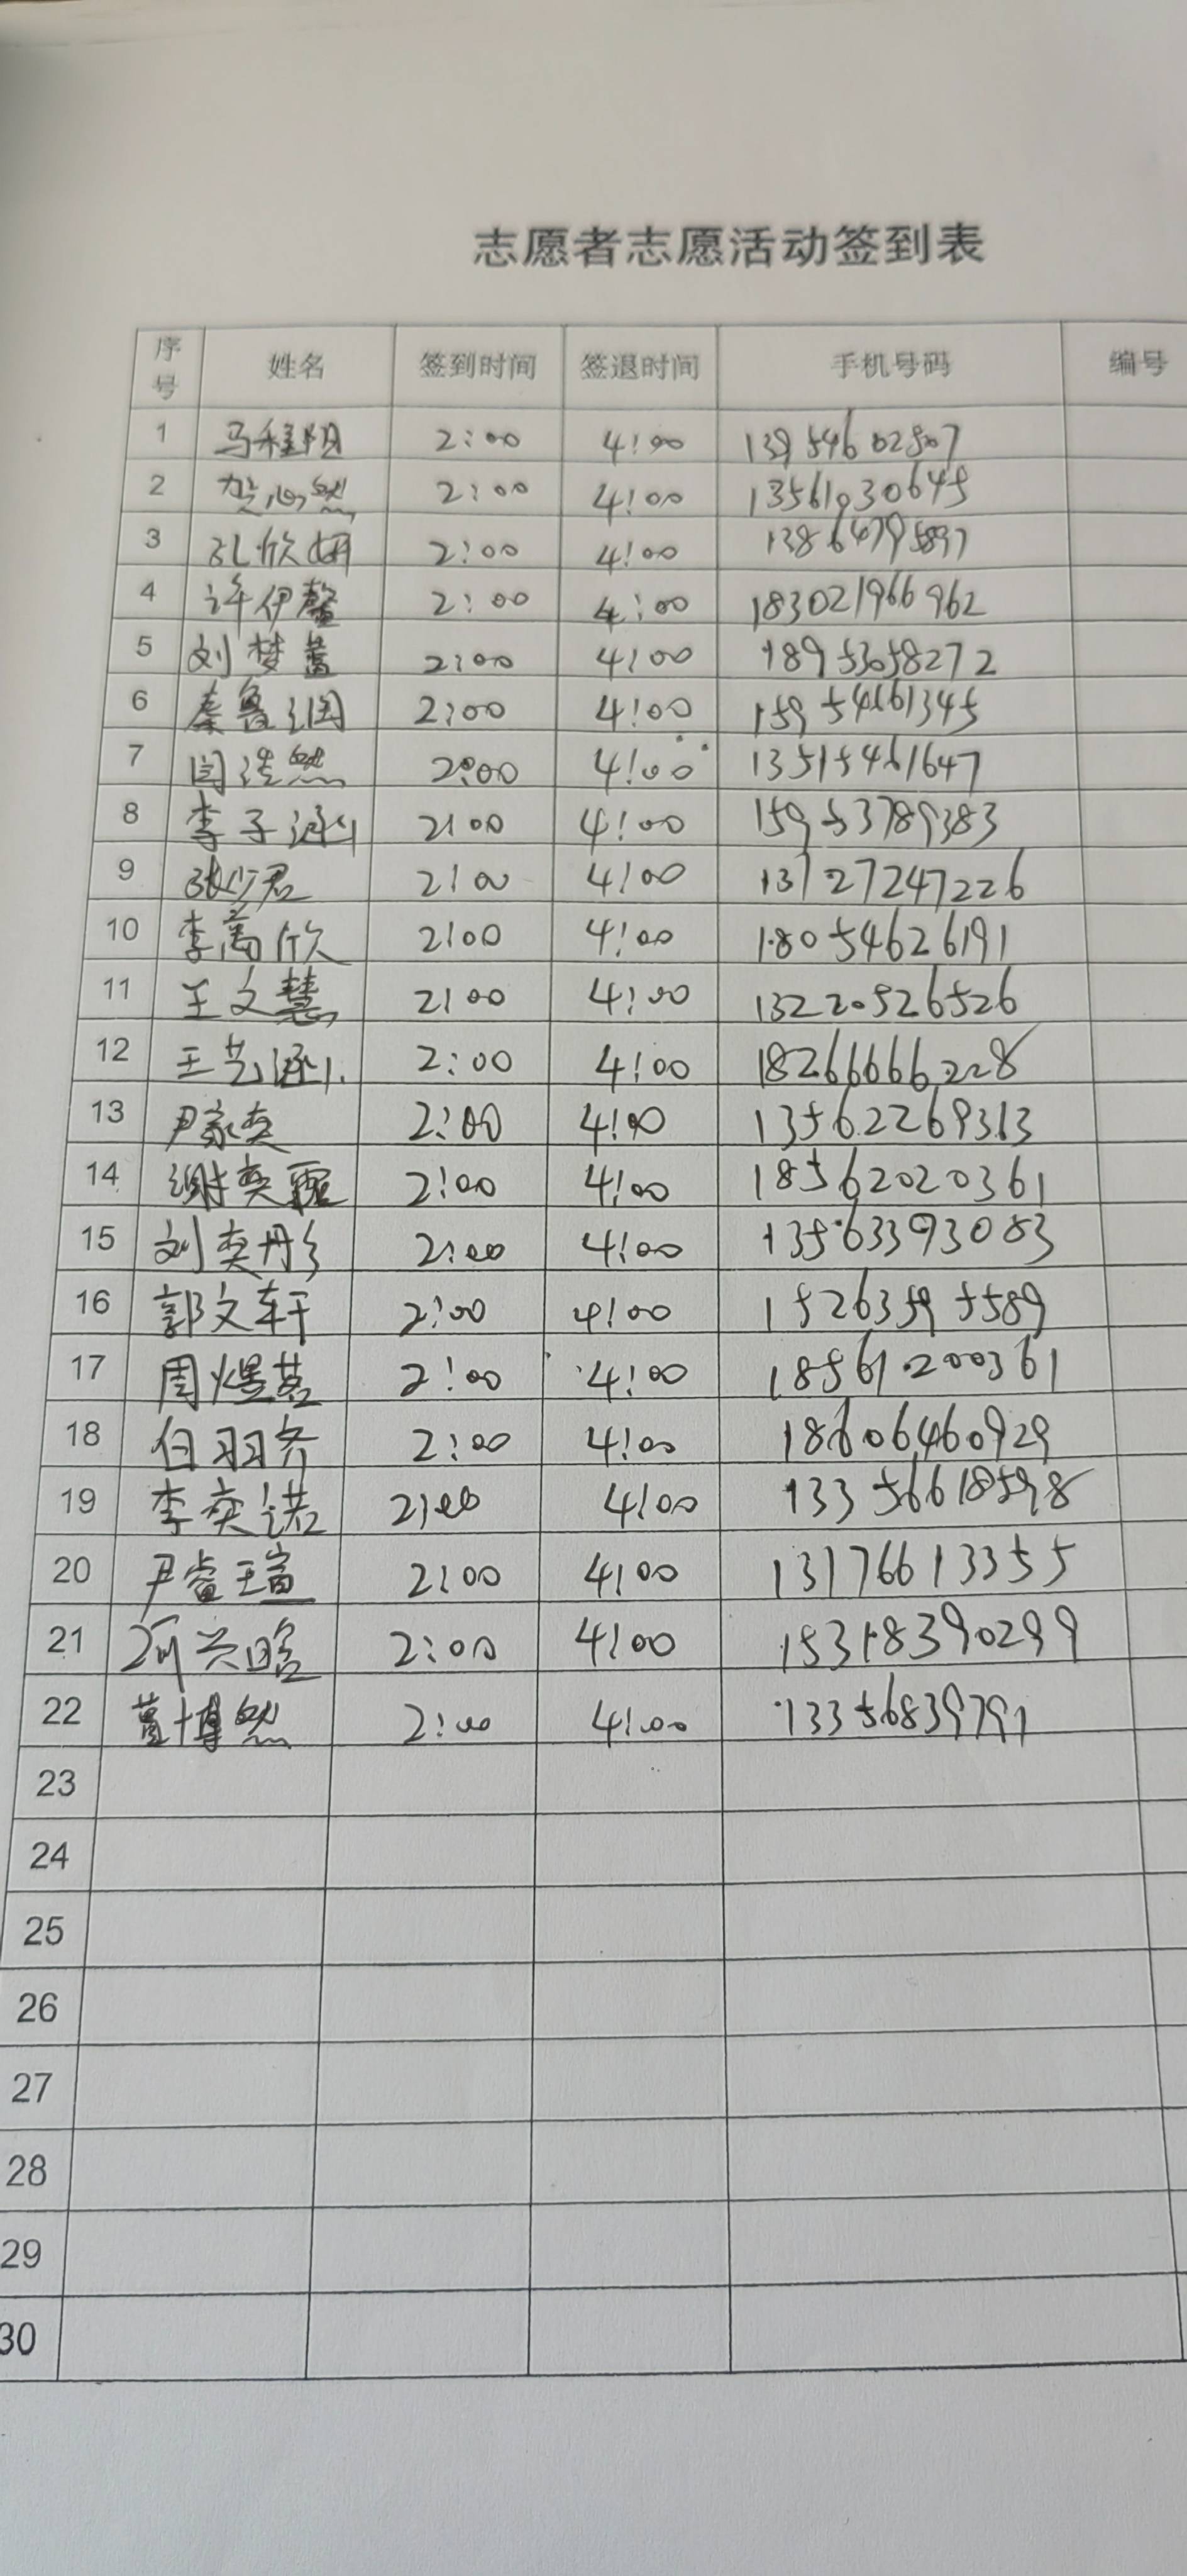 志愿者志愿活动签到表
序号 姓名 签到时间 签退时间 手机号码 编号
1 马程阳 2:00 4:00 13954602807
2 贺心然 2:00 4:00 13561030645
3 孔欣妍 2:00 4:00 13864795897
4 许伊馨 2:00 4:00 183021966962
5 刘梦 2:00 4:00 18953058272
6 秦鲁润 2:00 4:00 15954661345
7 闫浩然 2:00 4:00 13515461647
8 李子涵 2:00 4:00 15953789383
9 张少君 2:00 4:00 13127247226
10 李萬欣 2:00 4:00 18054626191
11 王文慧 2:00 4:00 13220526526
12 王艺涵 2:00 4:00 18266666228
13 尹家奕 2:00 4:00 13562269313
14 谢奕霏 2:00 4:00 18562020361
15 刘奕彤 2:00 4:00 13563393083
16 郭文轩 2:00 4:00 15263595589
17 周煜茗 2:00 4:00 18561200361
18 白羽齐 2:00 4:00 18606460929
19 李奕诺 2:00 4:00 13356618598
20 尹睿瑄 2:00 4:00 13176613355
21 兴晗 2:00 4:00 15318390299
22 董博然 2:00 4:00 13356839791
23
24
25
26
27
28
29
30